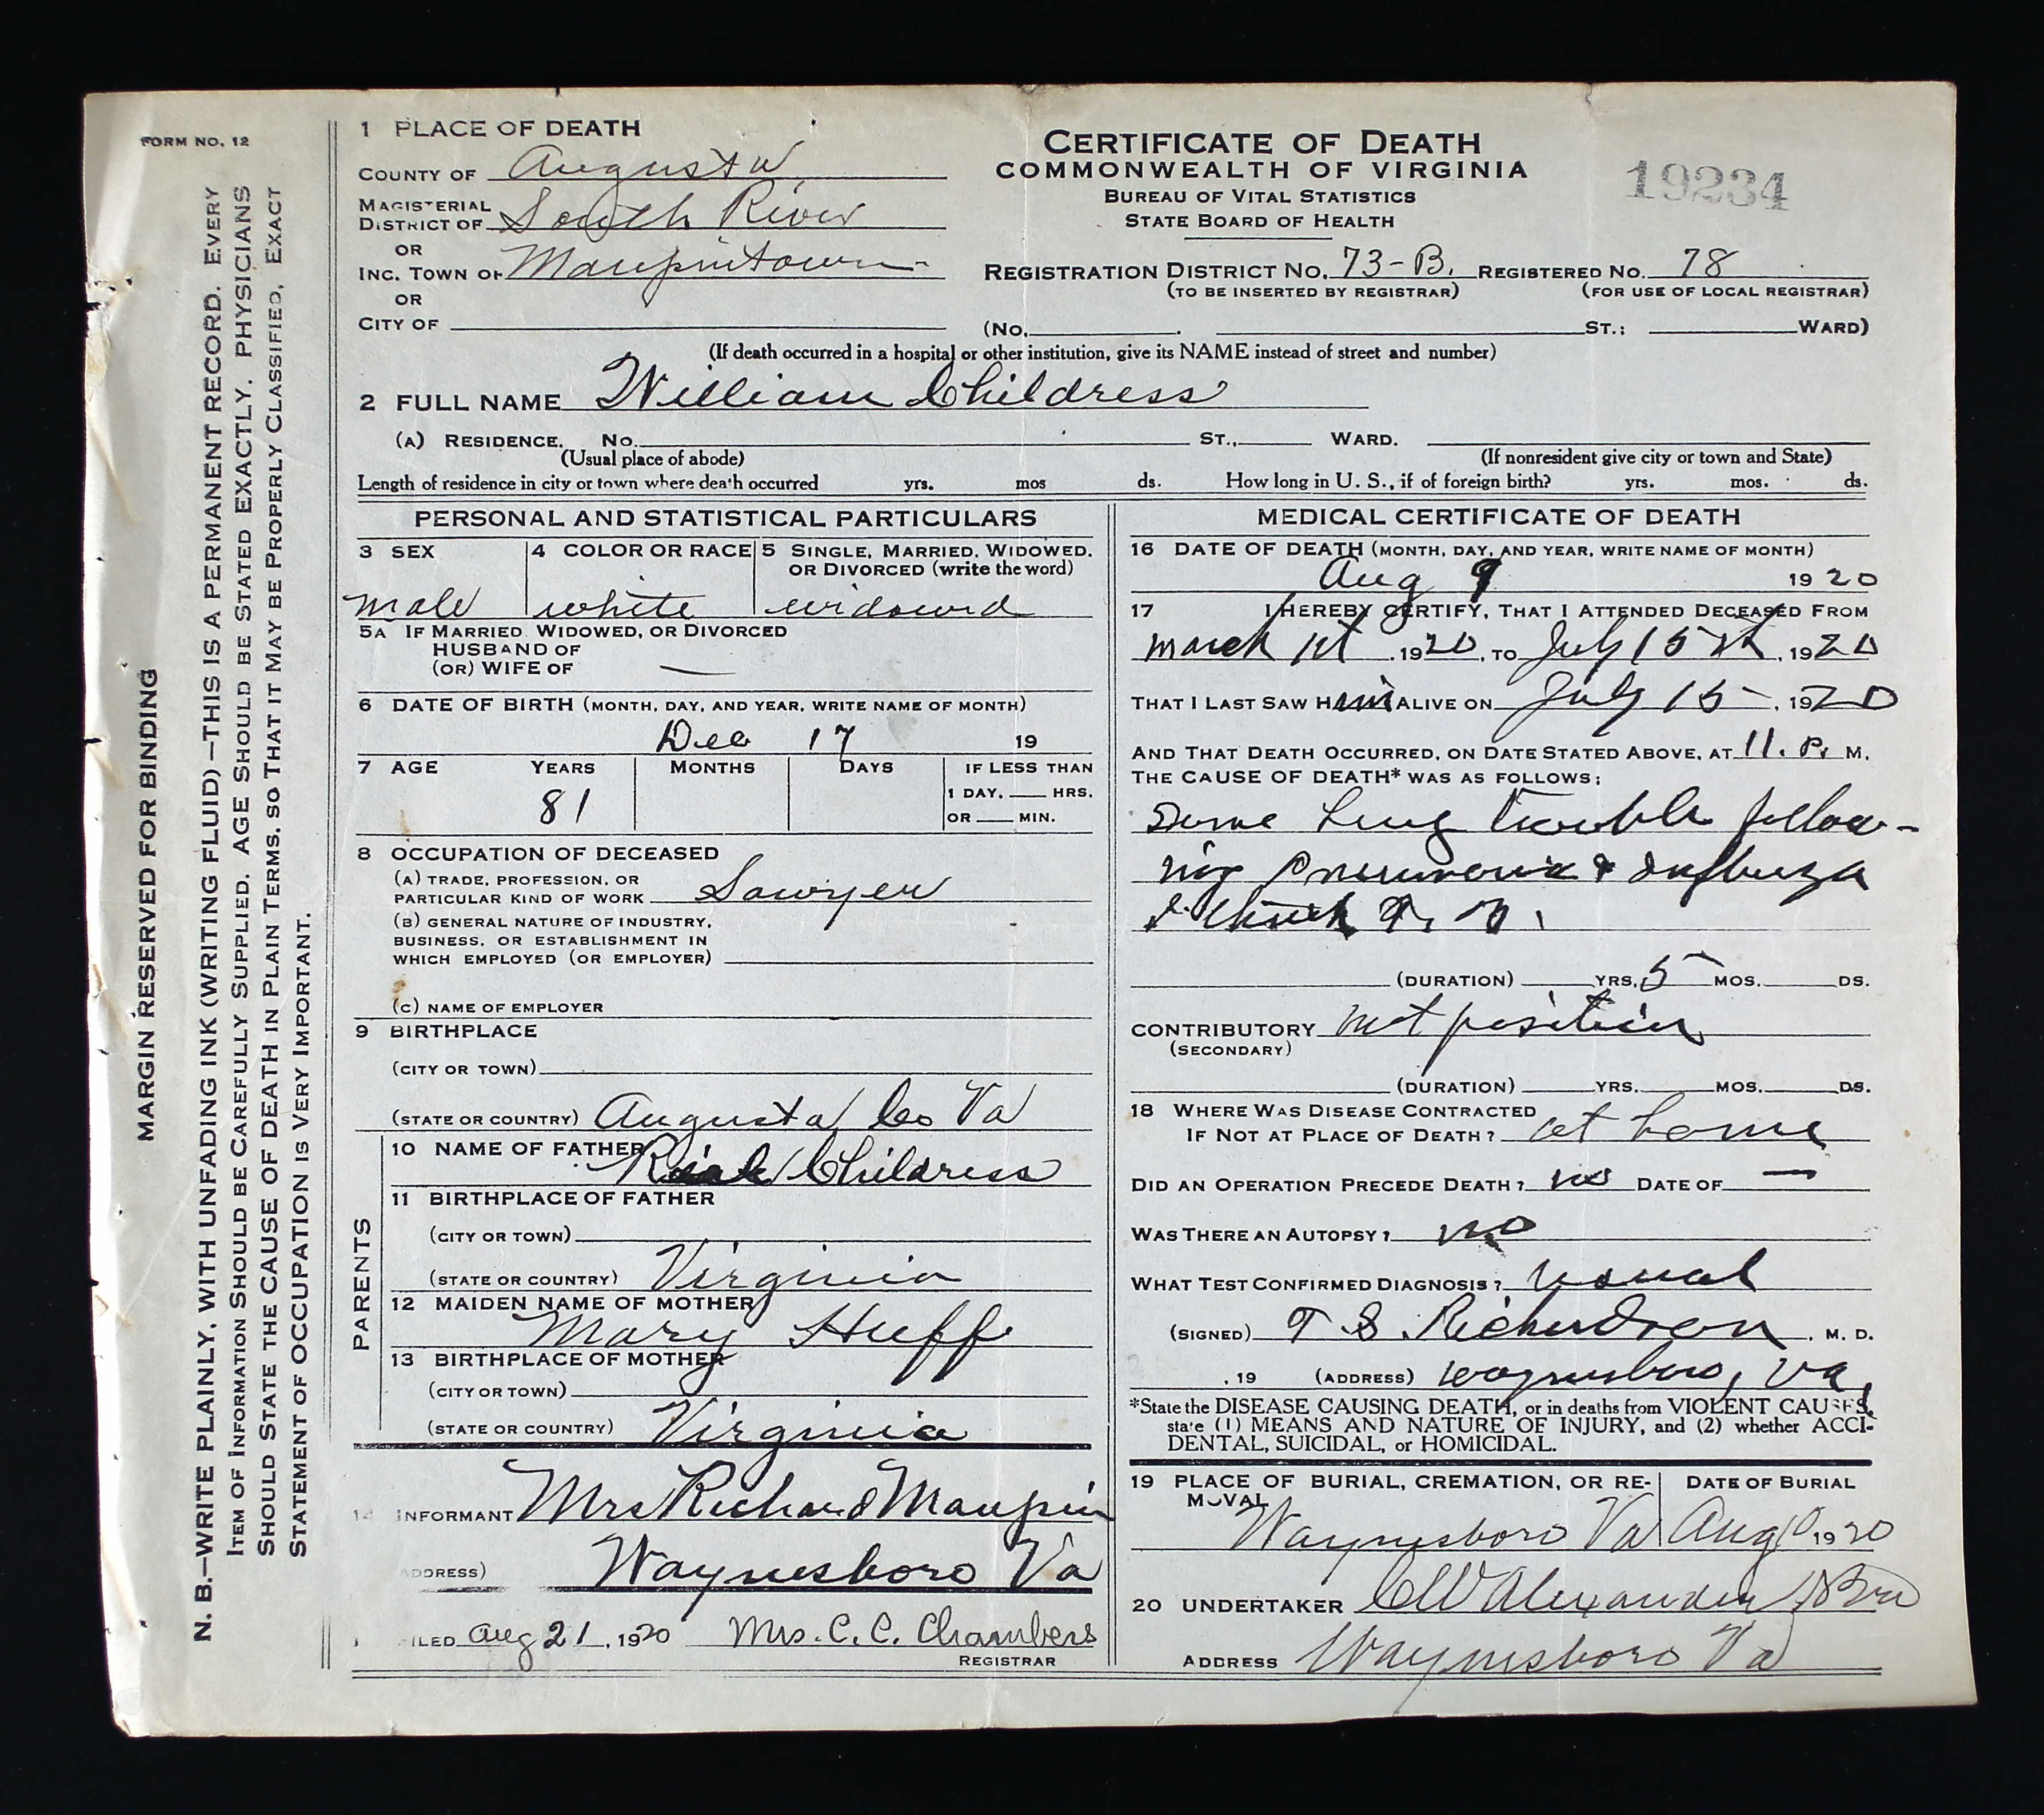 FORM NO. 12
MARGIN RESERVED FOR BINDING
N. B.—WRITE PLAINLY, WITH UNFADING INK (WRITING FLUID)—THIS IS A PERMANENT RECORD. EVERY
ITEM OF INFORMATION SHOULD BE CAREFULLY SUPPLIED. AGE SHOULD BE STATED EXACTLY. PHYSICIANS
SHOULD STATE THE CAUSE OF DEATH IN PLAIN TERMS, SO THAT IT MAY BE PROPERLY CLASSIFIED. EXACT
STATEMENT OF OCCUPATION IS VERY IMPORTANT.
1 PLACE OF DEATH
COUNTY OF Augusta
MAGISTERIAL
DISTRICT OF South River
OR
INC. TOWN OF Maupintown
OR
CITY OF
CERTIFICATE OF DEATH
COMMONWEALTH OF VIRGINIA
BUREAU OF VITAL STATISTICS
STATE BOARD OF HEALTH
19234
REGISTRATION DISTRICT NO. 73-B. REGISTERED NO. 78
(TO BE INSERTED BY REGISTRAR) (FOR USE OF LOCAL REGISTRAR)
(No. ST.; WARD)
(If death occurred in a hospital or other institution, give its NAME instead of street and number)
2 FULL NAME William Childress
(A) RESIDENCE. No. ST., WARD.
(Usual place of abode) (If nonresident give city or town and State)
Length of residence in city or town where death occurred yrs. mos ds. How long in U. S., if of foreign birth? yrs. mos. ds.
PERSONAL AND STATISTICAL PARTICULARS
3 SEX 4 COLOR OR RACE 5 SINGLE, MARRIED, WIDOWED,
OR DIVORCED (write the word)
male white widowd
5A IF MARRIED WIDOWED, OR DIVORCED
HUSBAND OF
(OR) WIFE OF —
6 DATE OF BIRTH (MONTH, DAY, AND YEAR, WRITE NAME OF MONTH)
Dec 17 19
7 AGE YEARS MONTHS DAYS IF LESS THAN
1 DAY, HRS.
81 OR MIN.
8 OCCUPATION OF DECEASED
(A) TRADE, PROFESSION, OR
PARTICULAR KIND OF WORK Sawyer
(B) GENERAL NATURE OF INDUSTRY,
BUSINESS, OR ESTABLISHMENT IN
WHICH EMPLOYED (OR EMPLOYER)
(C) NAME OF EMPLOYER
9 BIRTHPLACE
(CITY OR TOWN)
(STATE OR COUNTRY) Augusta Co Va
PARENTS
10 NAME OF FATHER Childress
11 BIRTHPLACE OF FATHER
(CITY OR TOWN)
(STATE OR COUNTRY) Virginia
12 MAIDEN NAME OF MOTHER
Mary Huff
13 BIRTHPLACE OF MOTHER
(CITY OR TOWN)
(STATE OR COUNTRY) Virginia
14 INFORMANT Mrs Richard Maupin
ADDRESS) Waynesboro Va
FILED Aug 21, 1920 Mrs. C. C. Chambers
REGISTRAR
MEDICAL CERTIFICATE OF DEATH
16 DATE OF DEATH (MONTH, DAY, AND YEAR, WRITE NAME OF MONTH)
Aug 9 1920
17 I HEREBY CERTIFY, THAT I ATTENDED DECEASED FROM
March 1st, 1920, TO July 15th, 1920
THAT I LAST SAW Him ALIVE ON July 15-, 1920
AND THAT DEATH OCCURRED, ON DATE STATED ABOVE, AT 11. P. M.
THE CAUSE OF DEATH* WAS AS FOLLOWS:
Some Lung trouble follow-
ing Pneumonia & Influenza
(DURATION) YRS. 5 MOS. DS.
CONTRIBUTORY not
(SECONDARY)
(DURATION) YRS. MOS. DS.
18 WHERE WAS DISEASE CONTRACTED
IF NOT AT PLACE OF DEATH? at home
DID AN OPERATION PRECEDE DEATH? no DATE OF —
WAS THERE AN AUTOPSY? no
WHAT TEST CONFIRMED DIAGNOSIS? usual
(SIGNED) T S. Richardson, M. D.
, 19 (ADDRESS) Waynesboro, Va,
*State the DISEASE CAUSING DEATH, or in deaths from VIOLENT CAUSES,
state (1) MEANS AND NATURE OF INJURY, and (2) whether ACCI-
DENTAL, SUICIDAL, or HOMICIDAL.
19 PLACE OF BURIAL, CREMATION, OR RE-
MOVAL DATE OF BURIAL
Waynesboro Va Aug 10 1920
20 UNDERTAKER C W Alexander & Bro
ADDRESS Waynesboro Va